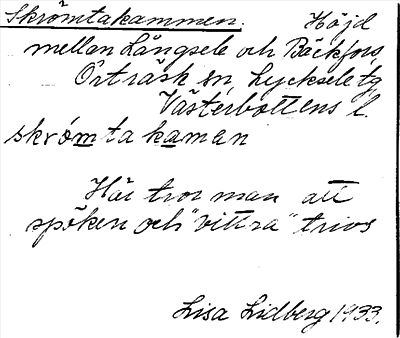 Skrömtakammen. Höjd
mellan Långsele och Bäckfors,
Örträsk sn, Lycksele tg
Västerbottens l.
skrömta kaman
Här tror man att
spöken och "vittra" trivs
Lisa Lidberg 1933.